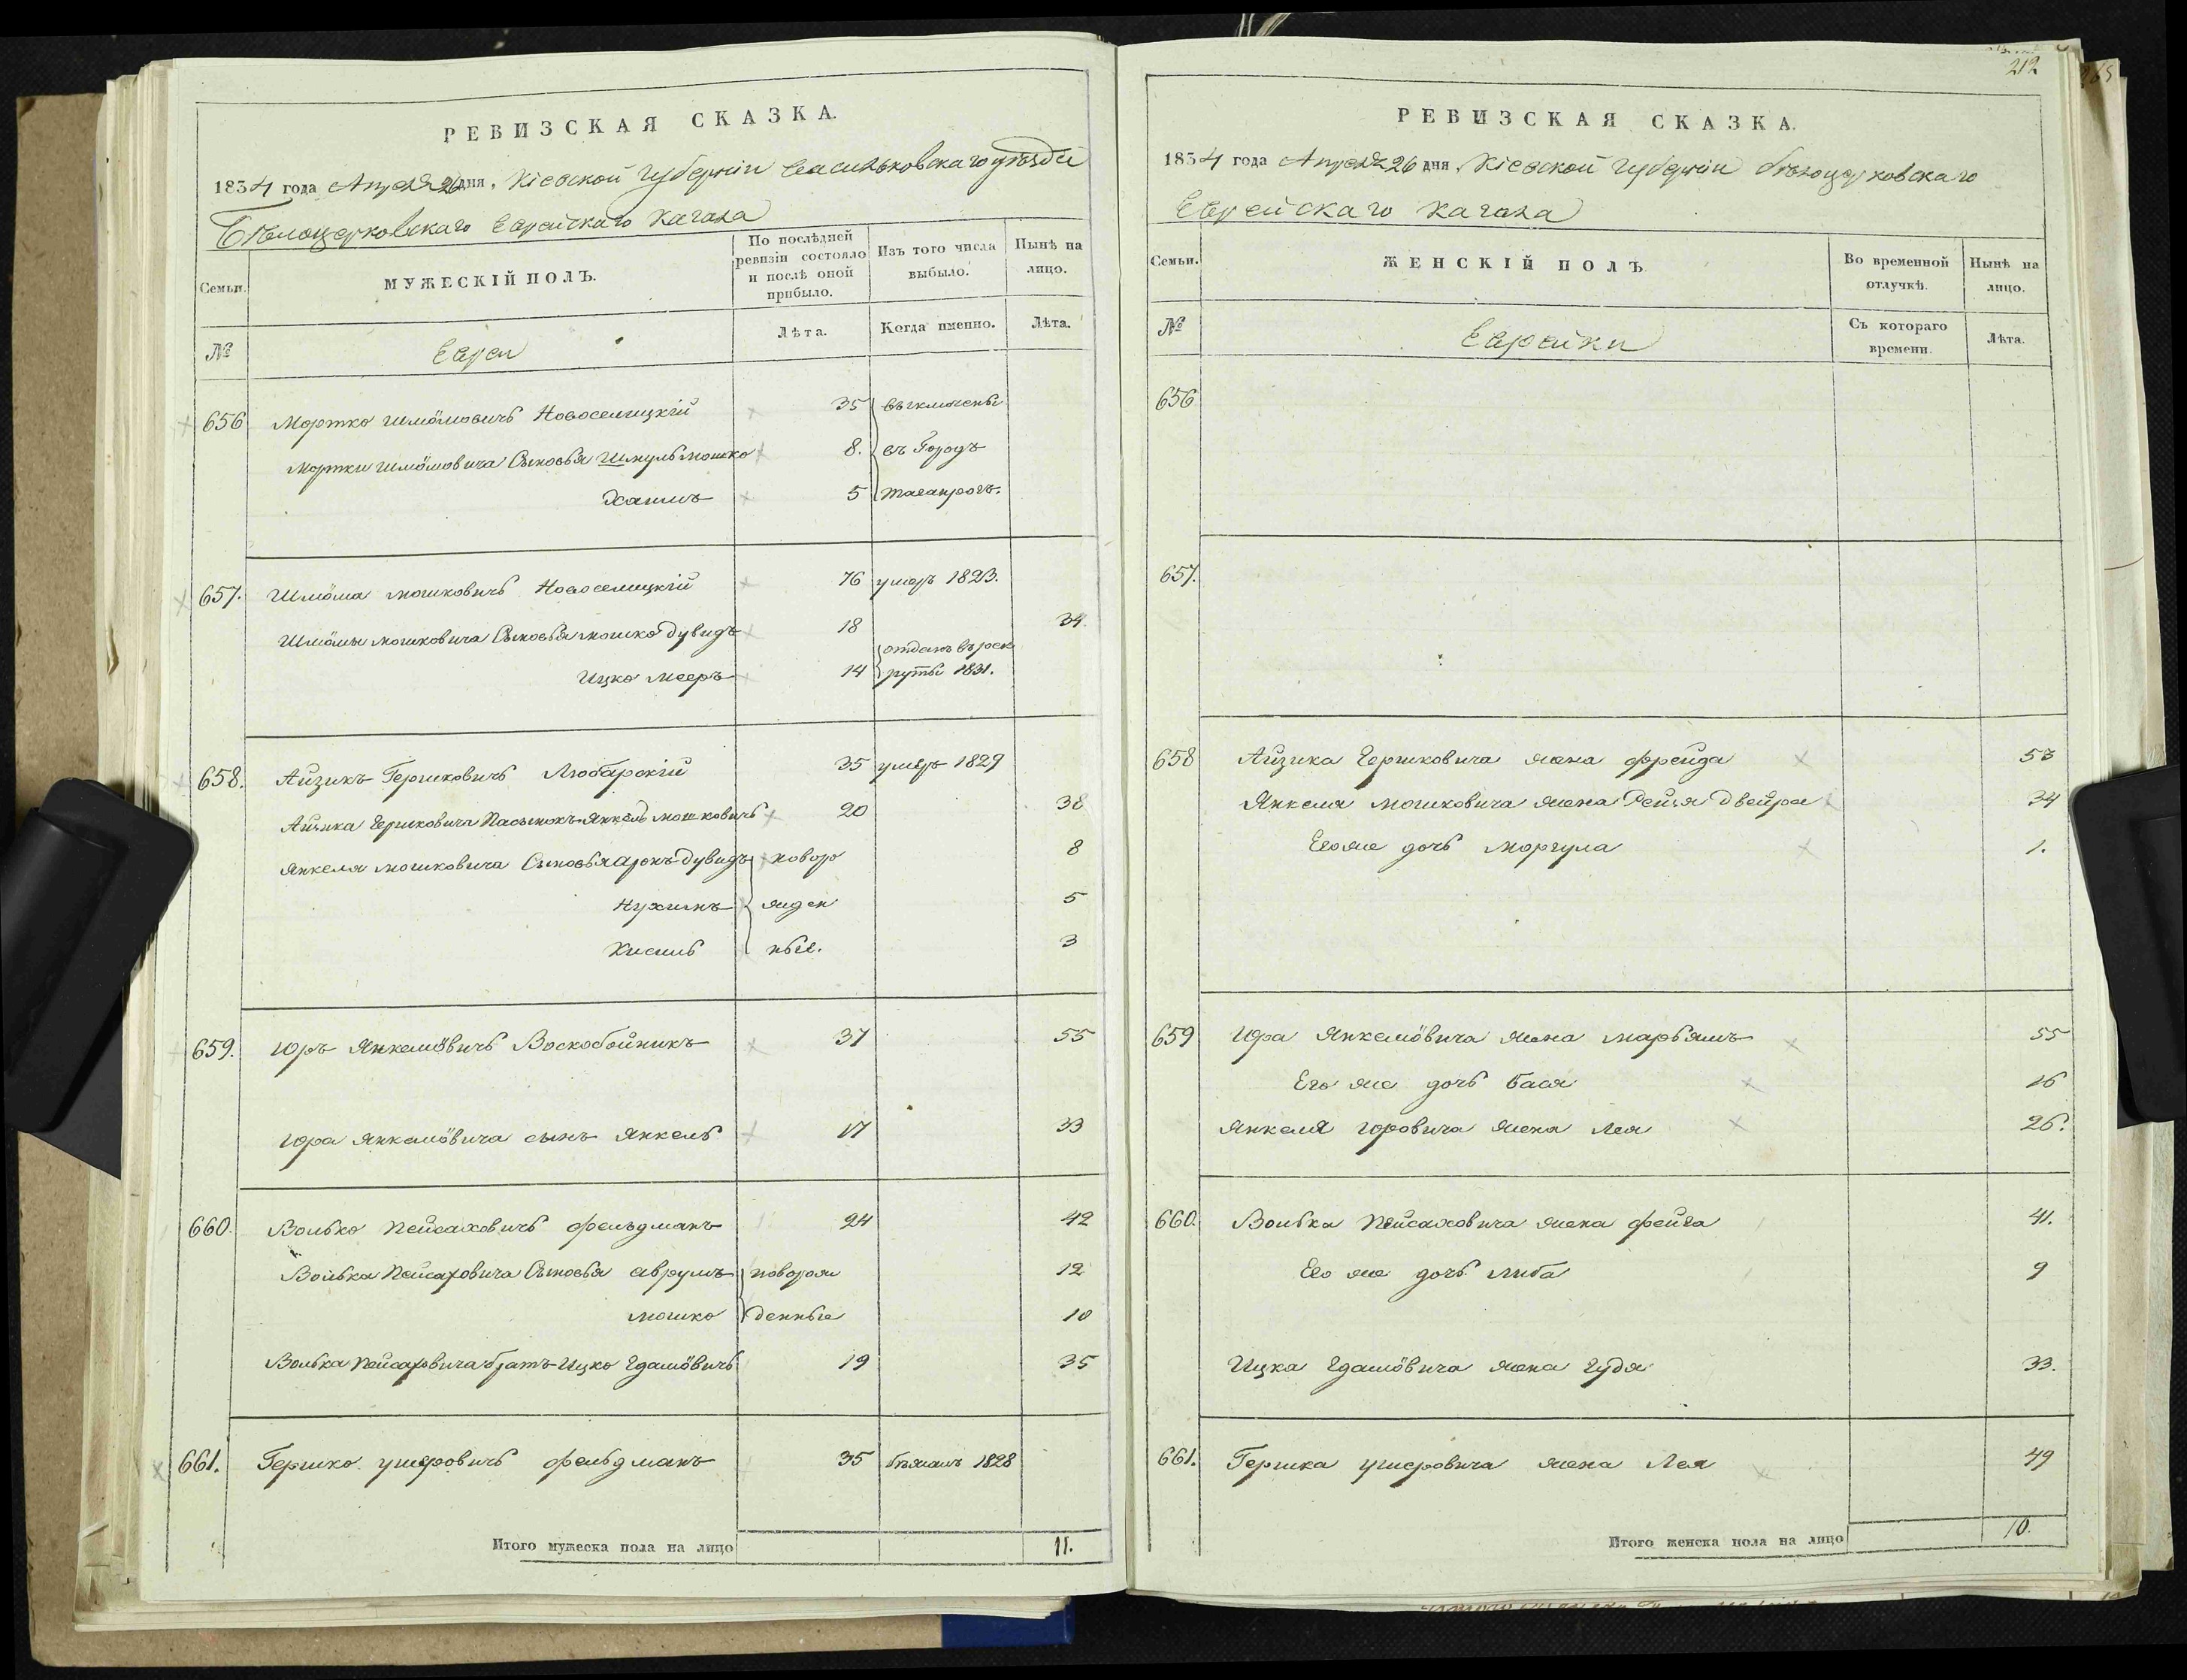 РЕВИЗСКАЯ СКАЗКА.
1834 года Апреля 26 дня, Кіевской Губерніи Васильковскаго уѣзда
Бѣлоцерковскаго Еврейскаго Кагала
Семьи.
МУЖЕСКІЙ ПОЛЪ.
По послѣдней ревизіи состояло и послѣ оной прибыло.
Изъ того числа выбыло.
Нынѣ на лицо.
№
Евреи
Лѣта.
Когда именно.
Лѣта.
656 Мортко Шлёмовичъ Новоселицкій 35 выключены
Мортки Шлёмовича Сыновья Шмуль Мошко 8. въ Городъ
Хаимъ 5 Таганрогъ.
657. Шлёма Мошковичъ Новоселицкій 76 умеръ 1823.
Шлёмы Мошковича Сыновья Мошко Дувидъ 18 34.
Ицко Мееръ 14 отданъ въ рекруты 1831.
658. Айзикъ Гершковичъ Любарскій 35 умеръ 1829
Айзика Гершковича Пасынокъ Янкель Мошковичъ 20 38
Янкеля Мошковича Сыновья Аронъ Дувидъ новоро 8
Нухимъ жден 5
Кисиль ные. 3
659. Юръ Янкелёвичъ Воскобойникъ 37 55
Юра Янкелёвича сынъ Янкель 17 33
660. Волько Пейсаховичъ Фельдманъ 24 42
Волька Пейсаховича Сыновья Аврумъ новорож 12
Мошко денные 10
Волька Пейсаховича братъ Ицко Гдалёвичъ 19 35
661. Гершко Ушеровичъ Фельдманъ 35 бѣжалъ 1828
Итого мужеска пола на лицо 11.
212
РЕВИЗСКАЯ СКАЗКА.
1834 года Апреля 26 дня, Кіевской Губерніи Бѣлоцерковскаго
Еврейскаго Кагала
Семьи.
ЖЕНСКІЙ ПОЛЪ
Во временной отлучкѣ.
Нынѣ на лицо.
№
Еврейки
Съ котораго времени.
Лѣта.
656
657.
658 Айзика Гершковича жена Фрейда 53
Янкеля Мошковича жена Рейзя Двейра 34
Его же дочь Моргула 1.
659 Юра Янкелёвича жена Марьямъ 55
Его же дочь Бася 16
Янкеля Юровича жена Лея 26.
660. Волька Пейсаховича жена Фейга 41.
Его же дочь Либа 9
Ицка Гдалёвича жена Гудя 33.
661. Гершка Ушеровича жена Лея 49
Итого женска пола на лицо 10.